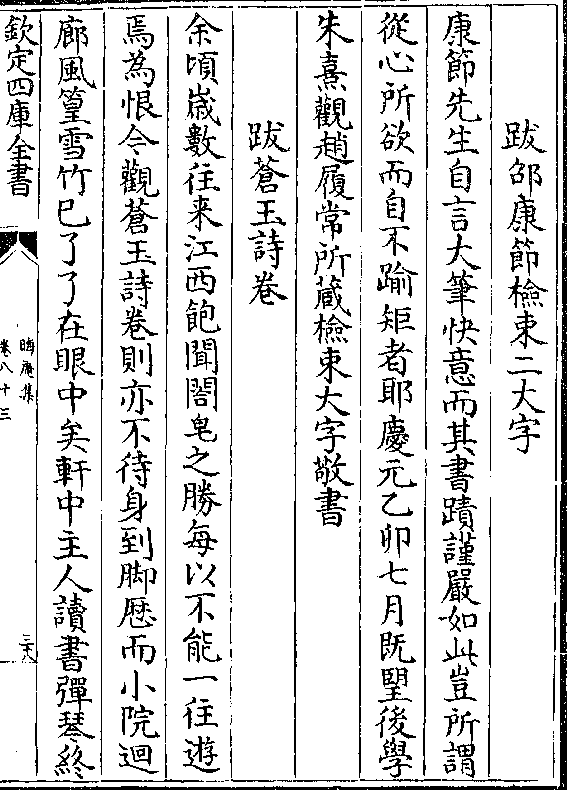 跋邵康節檢束二大字
康節先生自言大筆快意而其書蹟謹嚴如此豈所謂
從心所欲而自不踰矩者耶慶元乙卯七月既朢後學
朱熹觀趙履常所蔵檢束大字敬書
跋蒼玉詩卷
余頃嵗數往来江西飽聞閤皂之勝每以不能一往遊
焉為恨令觀蒼玉詩卷則亦不待身到脚厯而小院迴
廊風篁雪竹已了了在眼中矣軒中主人讀書彈琴終
欽定四庫全書
晦庵集
卷八十三
三六